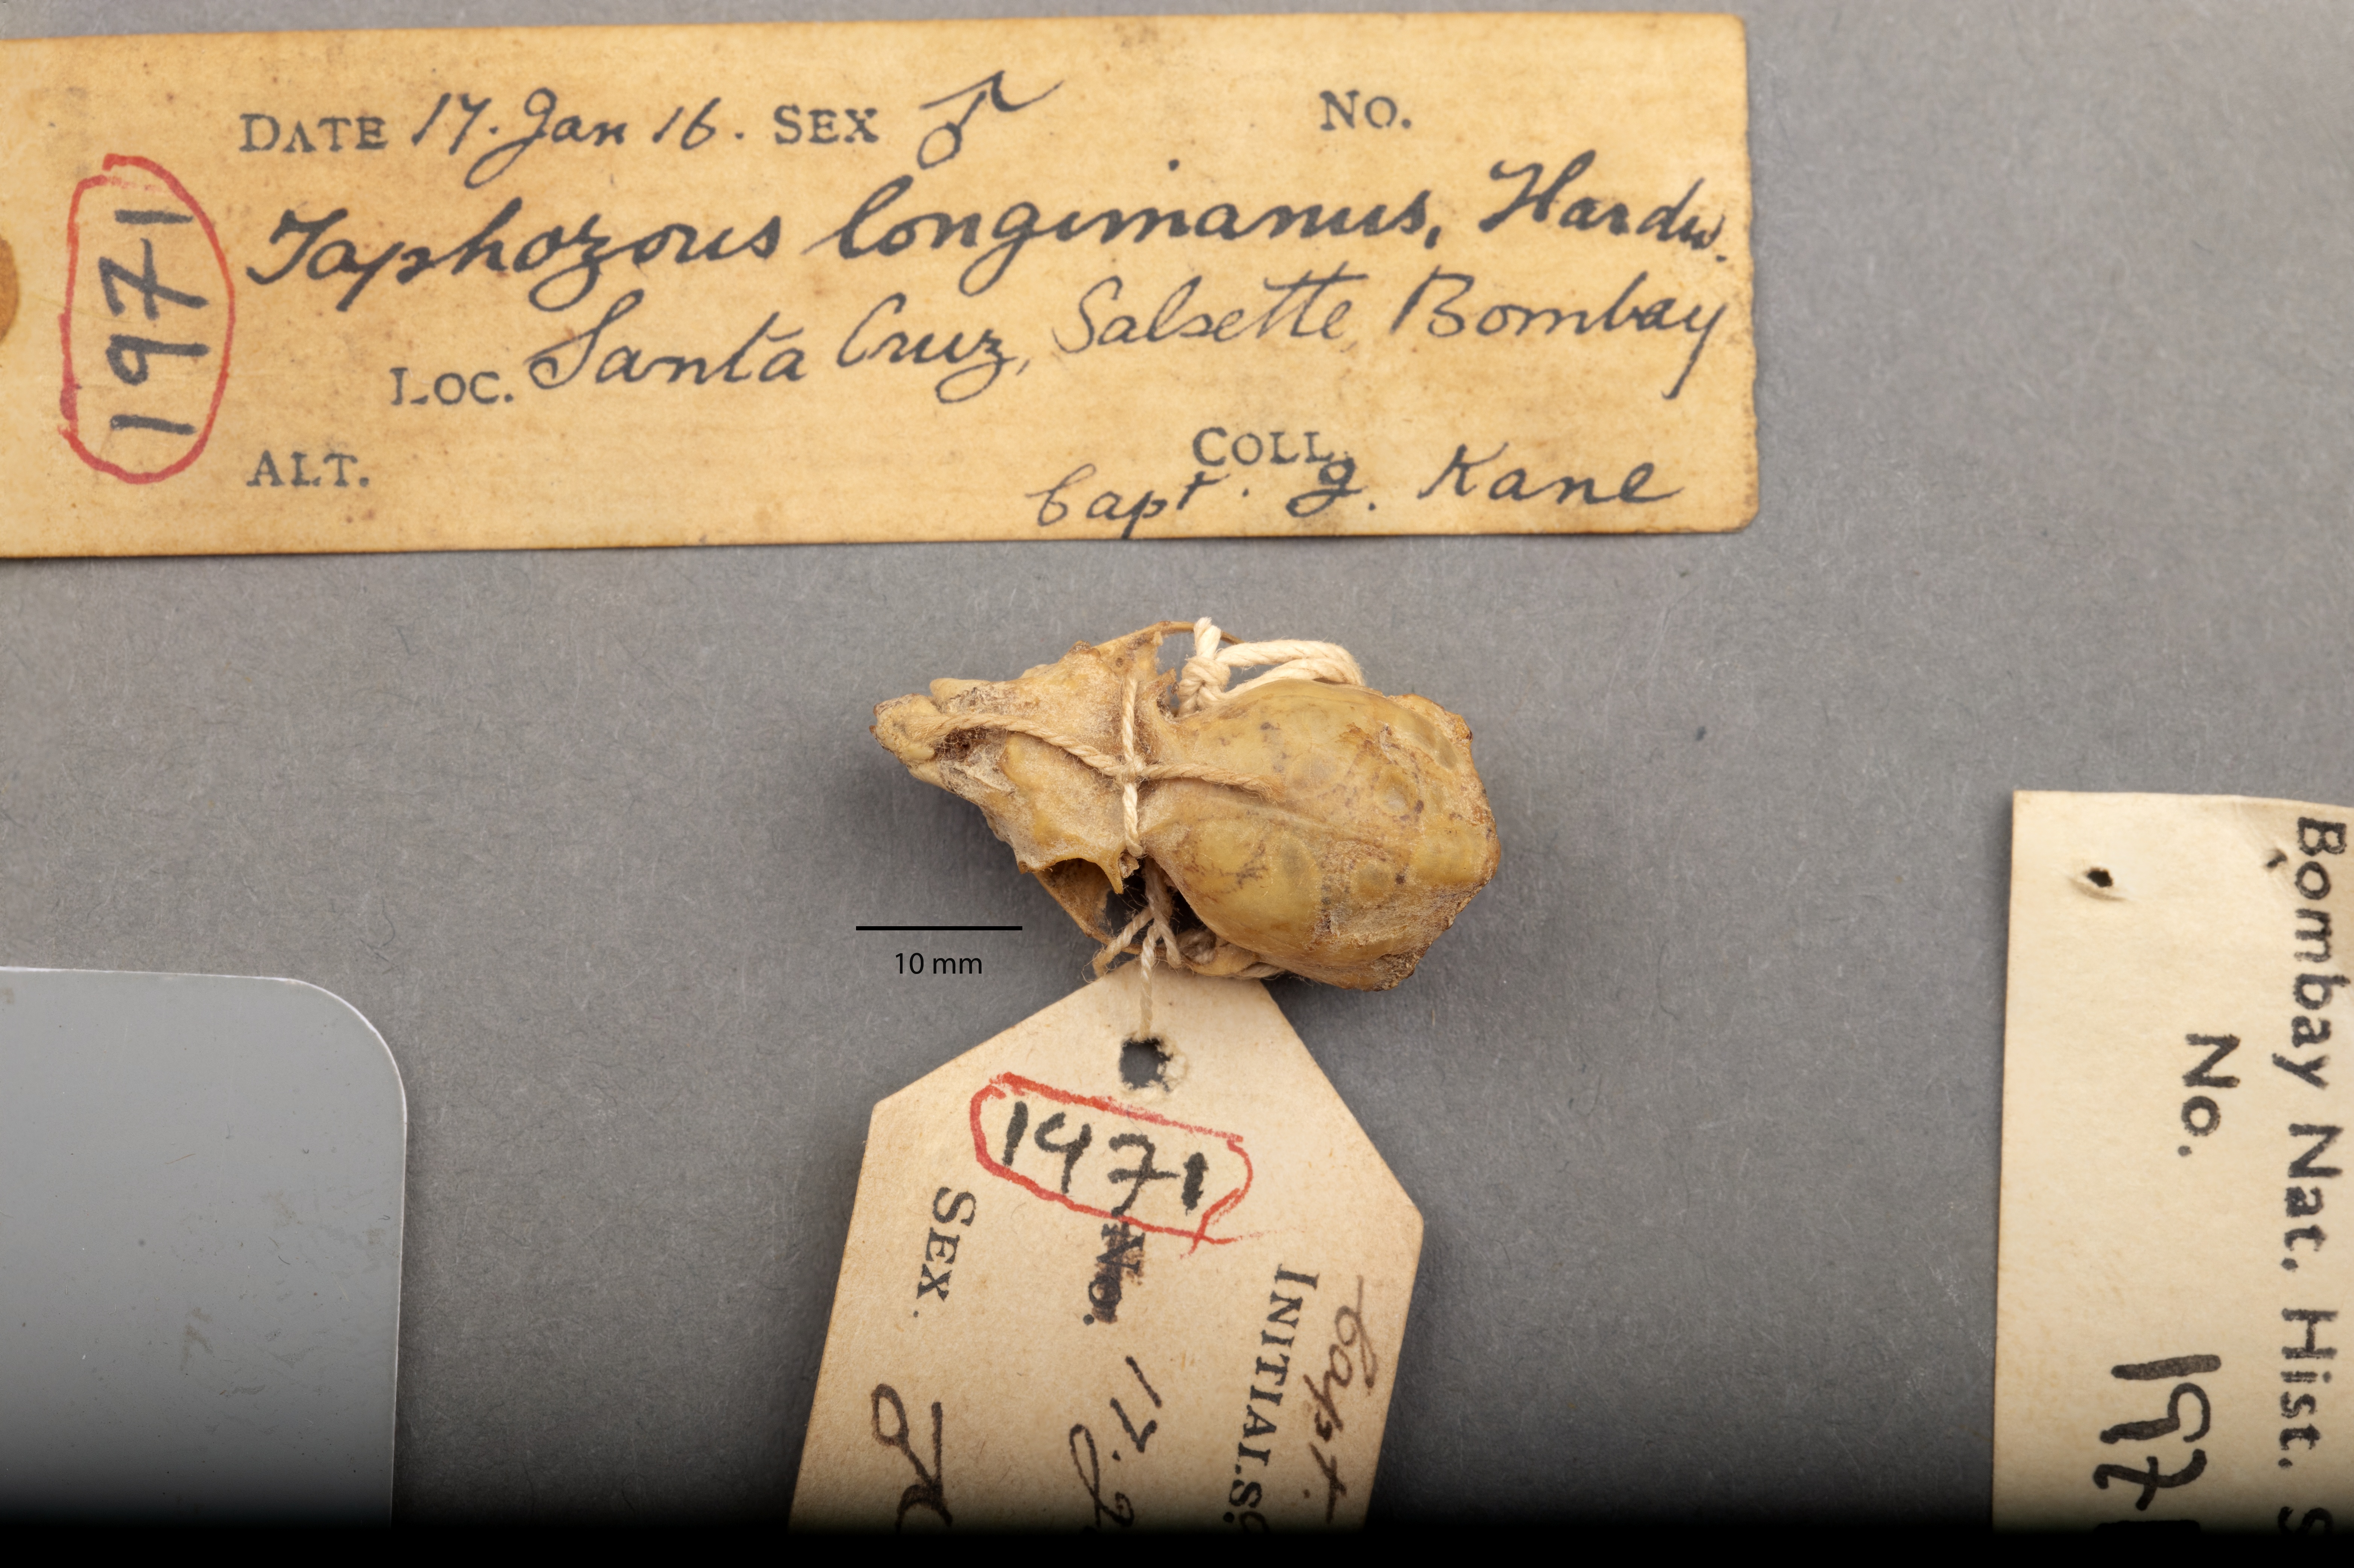 DATE 17. Jan 16. SEX ♂ NO.
1971
Taphozous longimanus, Hardw.
LOC. Santa Cruz, Salsette, Bombay
ALT. COLL.
Capt. G. Kane
10 mm
1971
SEX. ♂
No. 17.
INITIALS.
Capt.
Bombay Nat. Hist. S
No. 1971